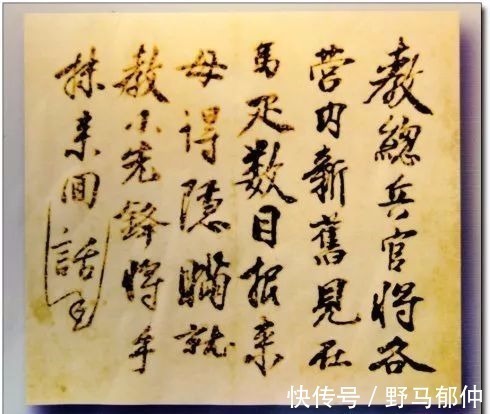 教總兵官將各
營內新舊見在
馬疋數目报来
毋得隱瞞就
教小先鋒將手
抹来囬話
快传号 / 野马郁仲